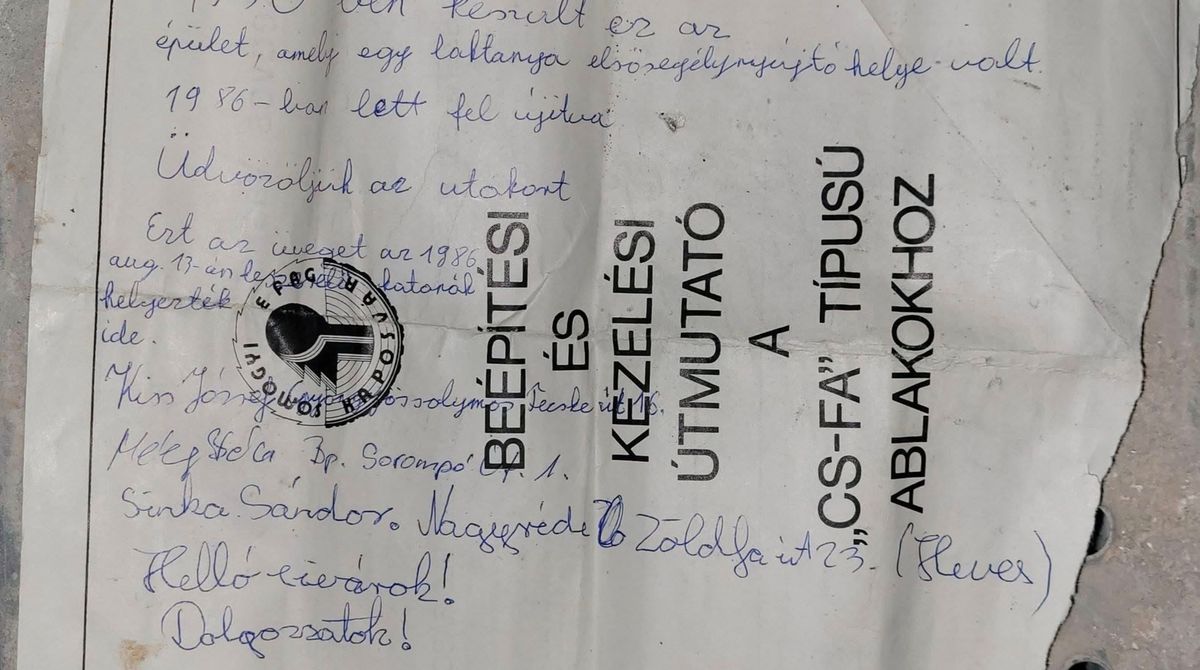 ben készült ez az
épület, amely egy laktanya elsősegélynyújtó helye volt.
1986-ban lett fel újítva
Üdvözöljük az utókort
Ezt az üveget az 1986
aug. 13-án leszerelő katonák
helyezték
ide.
Kiss József Gyöngyössolymos Fecske út 16.
Meleg Béla Bp. Sorompó u. 1.
Sinka Sándor. Nagyréde Zöldfa út 23. (Heves)
Helló civárok!
Dolgozzatok!
BEÉPÍTÉSI
ÉS
KEZELÉSI
ÚTMUTATÓ
A
„CS-FA” TÍPUSÚ
ABLAKOKHOZ
SOMOGYI
KAPOSVÁR